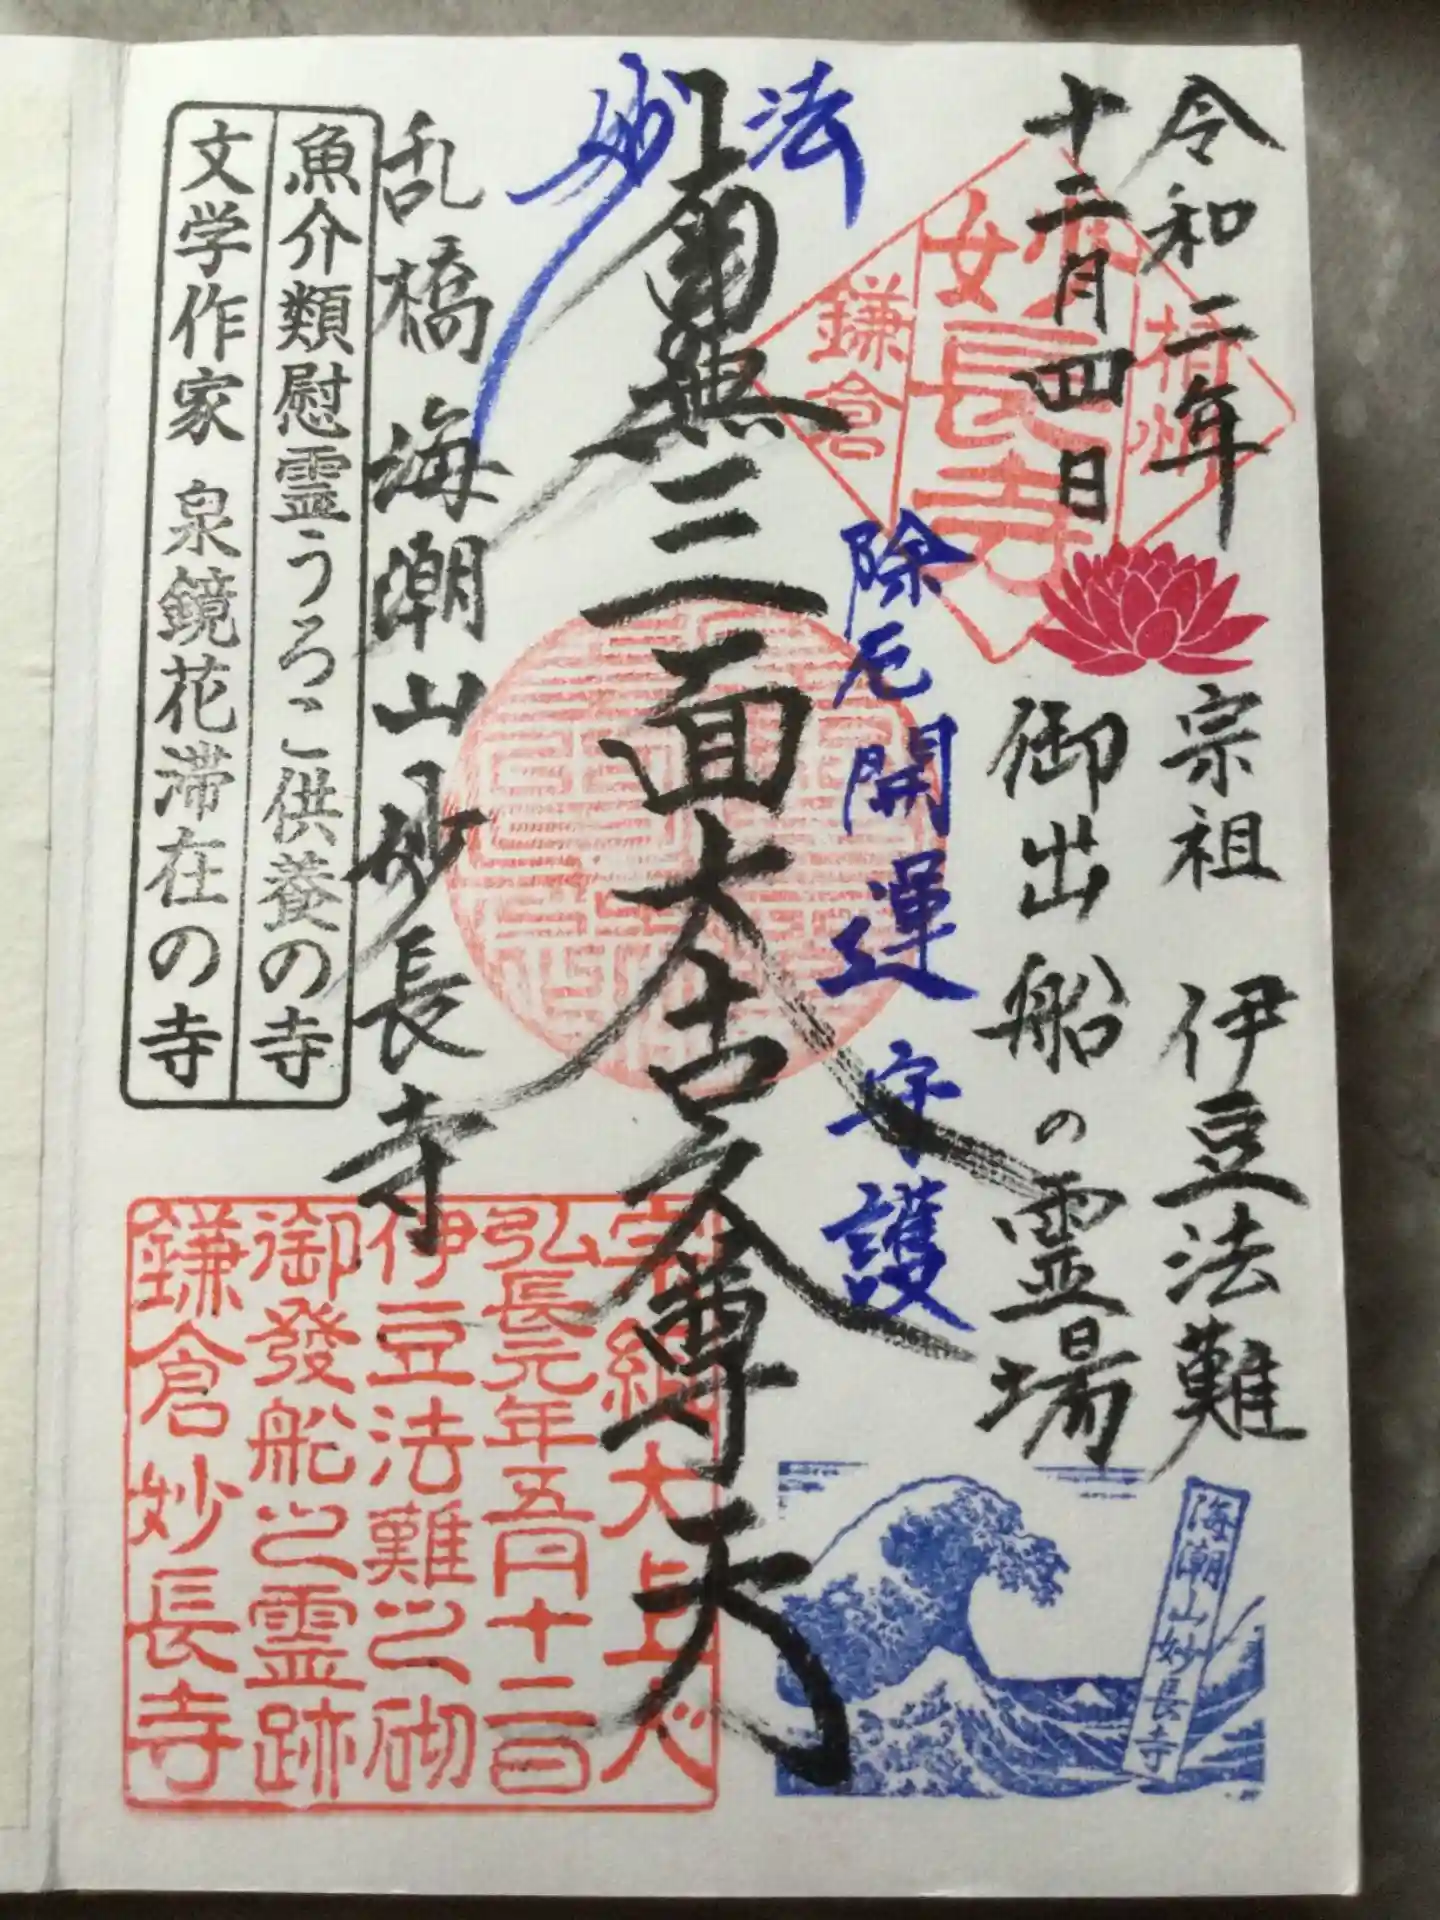 令和二年
十二月四日
宗祖 伊豆法難
御出船の霊場
妙法
除厄開運守護
南無三面大吉尊天
乱橋 海潮山妙長寺
魚介類慰霊うろこ供養の寺
文学作家 泉鏡花滞在の寺
妙長寺
鎌倉
弘長元年五月十二日
伊豆法難之砌
御發船之霊跡
鎌倉妙長寺
海潮山妙長寺